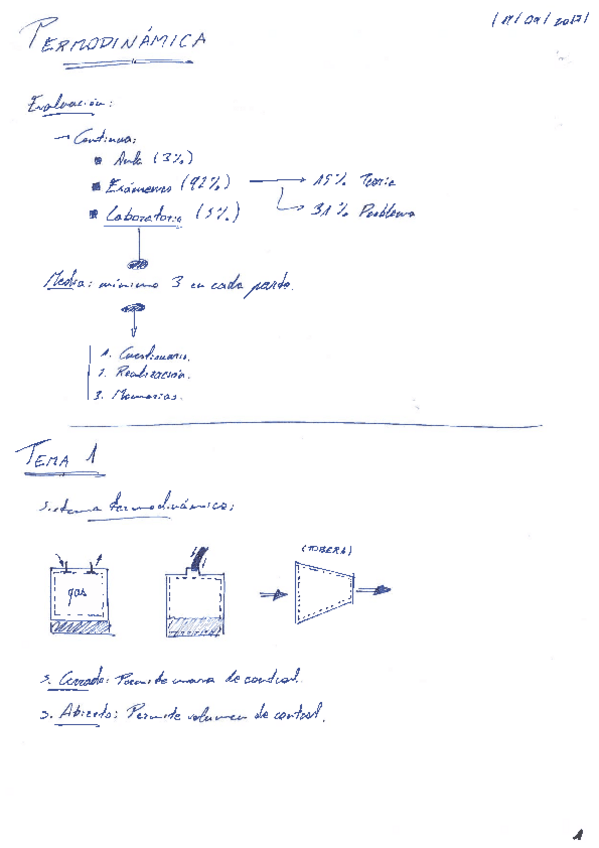 TERMODINÁMICA
Evaluación:
→ Continua:
Aula (3%)
Exámenes (92%) → 15% Teoría
→ 31% Problema
Laboratorio (5%)
Media: mínimo 3 en cada parte.
1. Cuestionario.
2. Realización.
3. Memorias.
TEMA 1
Sistema termodinámico:
(TOBERA)
gas
S. Cerrado: Permite masa de control.
S. Abierto: Permite volumen de control.
1